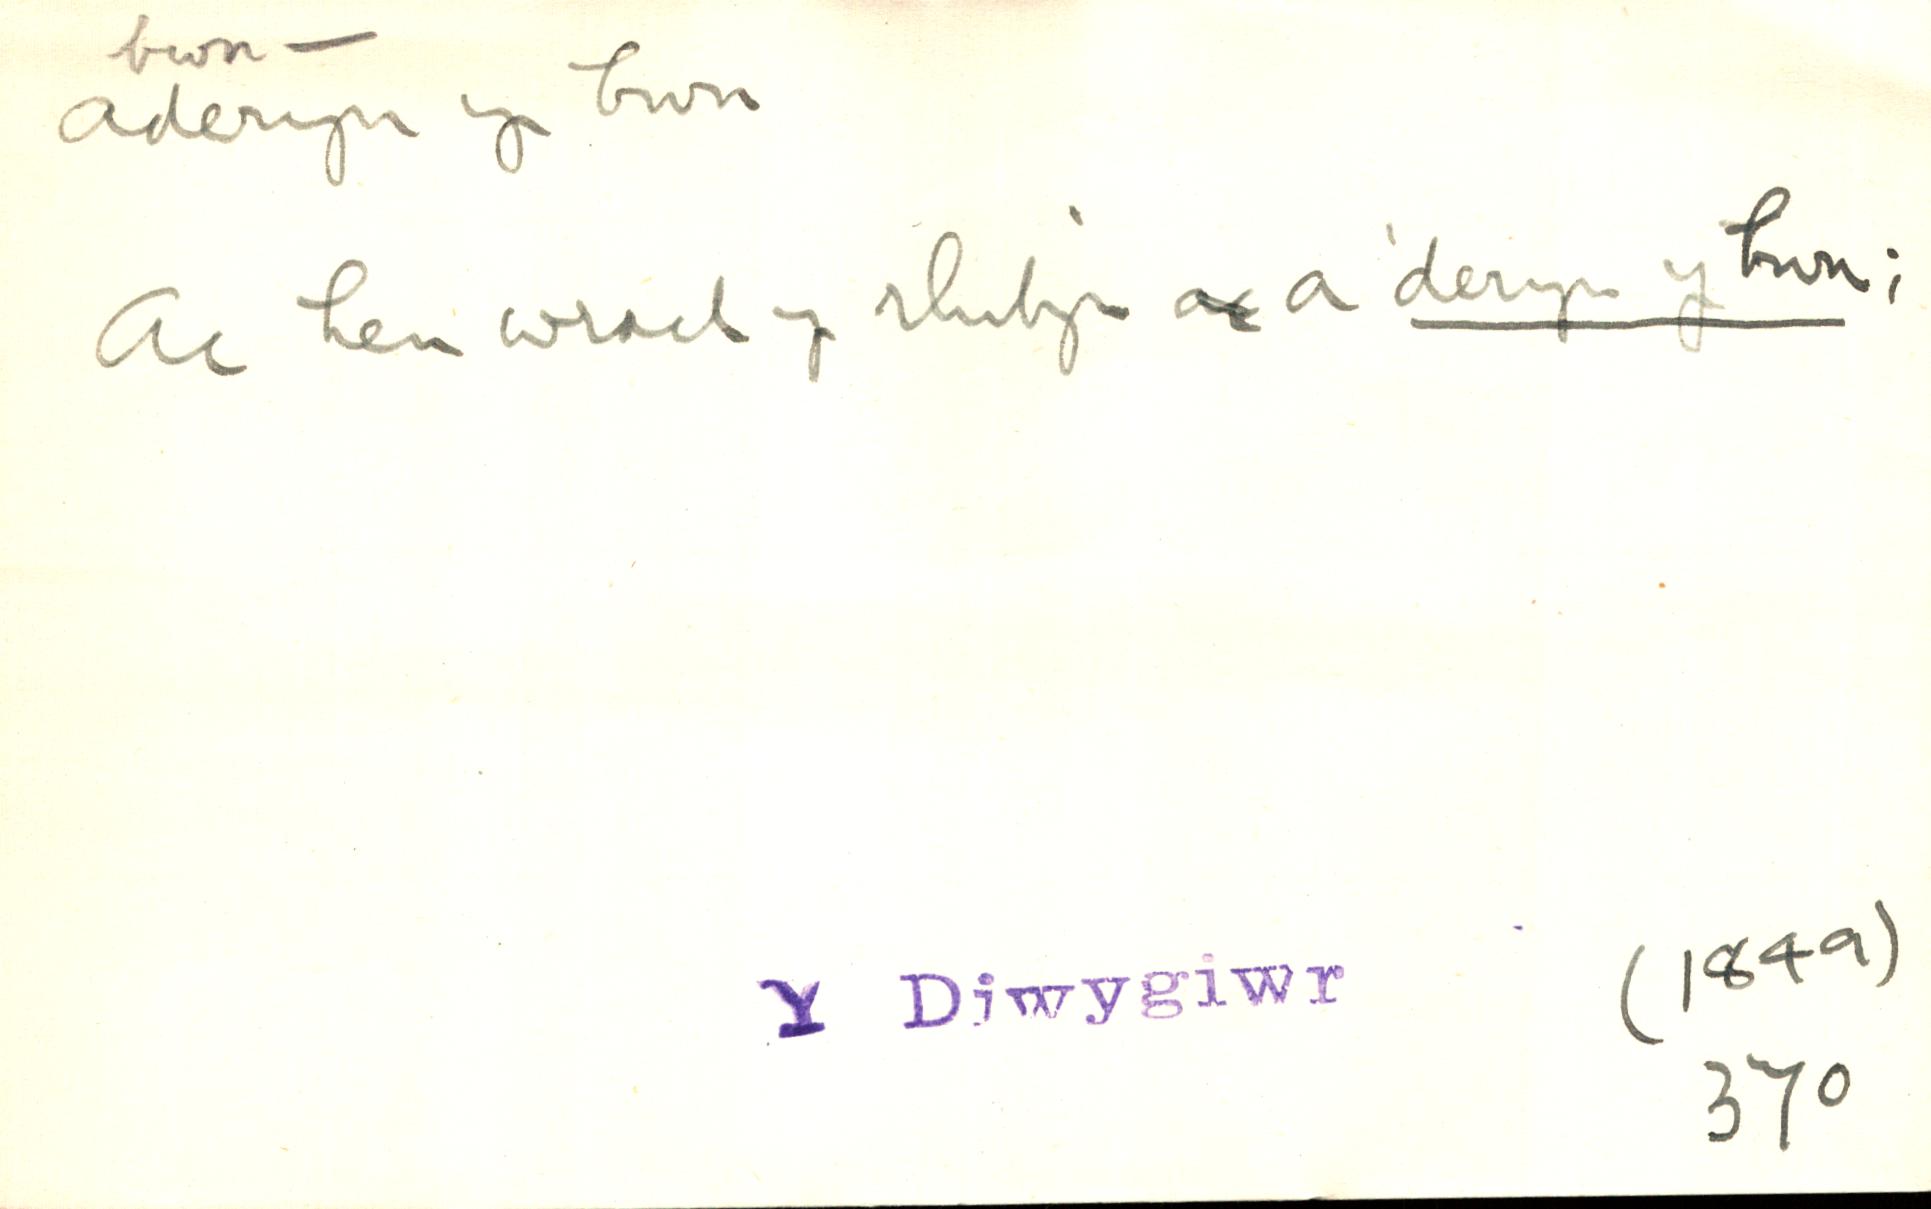 bwn —
aderyn y bwn
Ac hen wrach y rhibyn a a 'deryn y bwn;
Y Diwygiwr (1849)
370